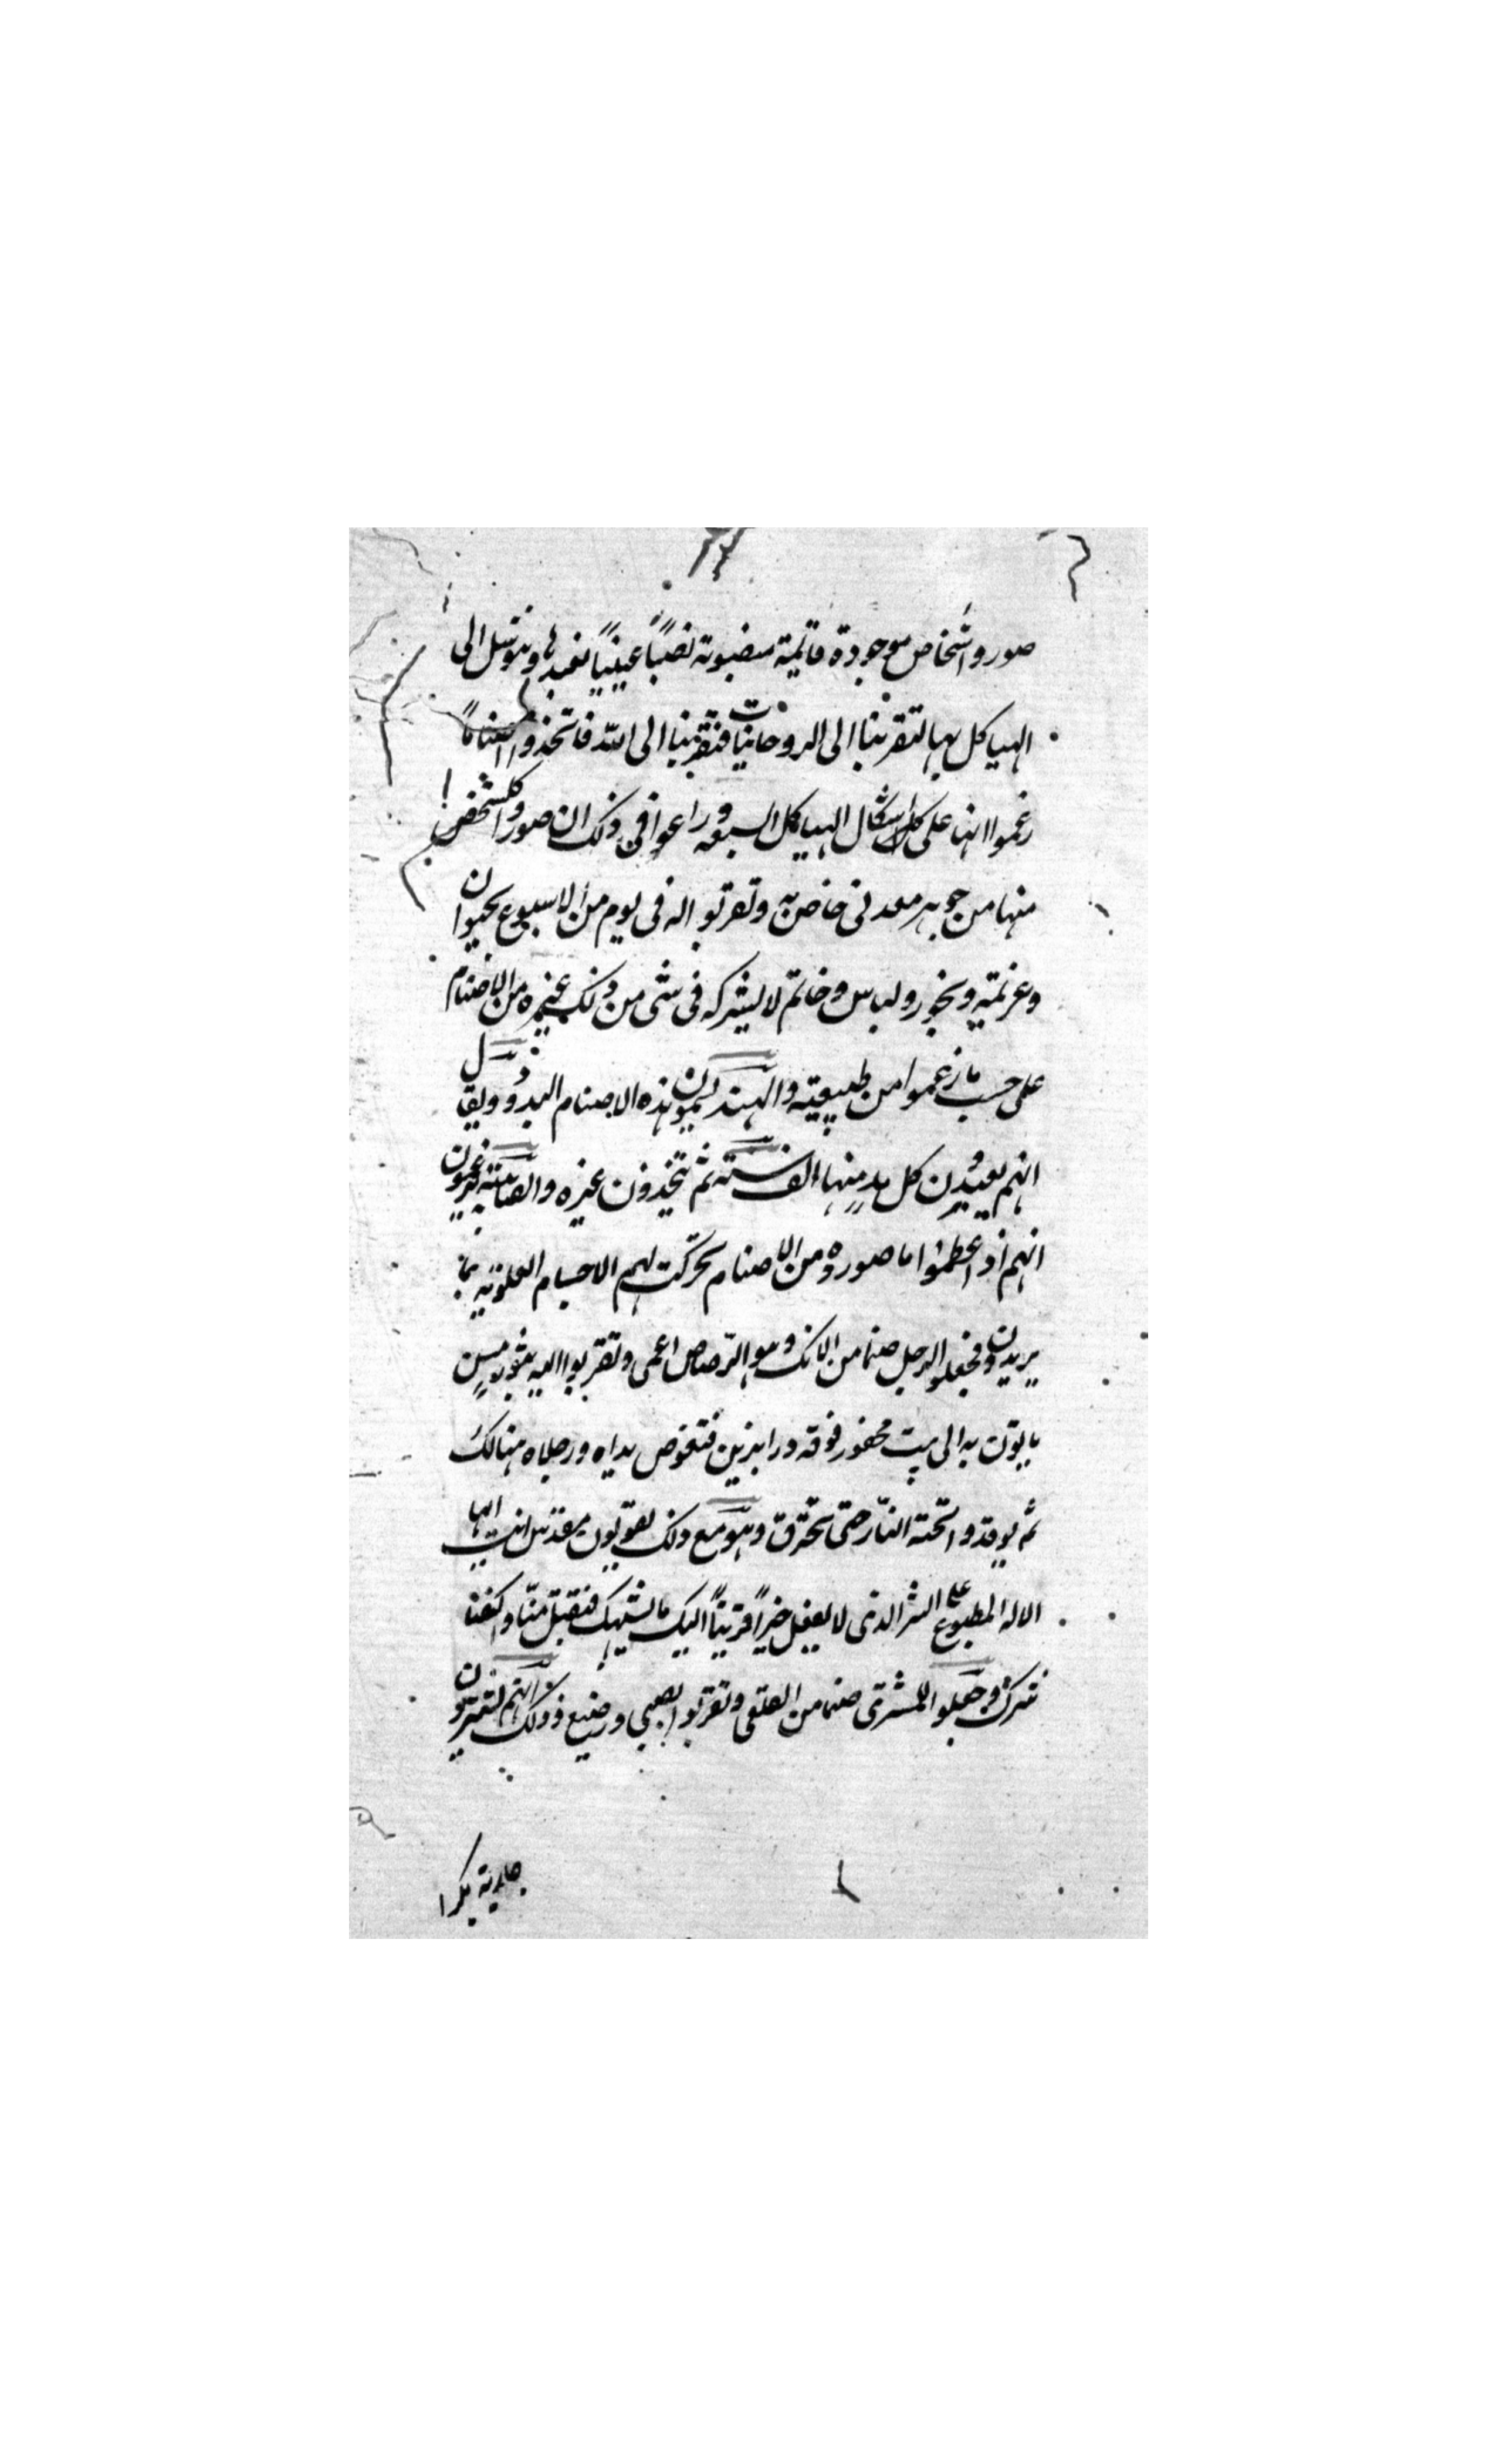 صور واشخاص موجودة قائمة منصوبة نصباً عينياً نعبدها ونتوسل الى
الهياكل بها لتقربنا الى الروحانيات فتقربنا الى الله فاتخذوا اصناماً
زعموا انها على اشكال الهياكل السبعة وراعوا فى ذلك ان صوروا كل شخص
منها من جوهر معدنى خاص به وتقربوا له فى يوم من الاسبوع بحيوان
وعزيمة وبخور ولباس وخاتم لا يشركه فى شى من ذلك غيره من الاصنام
على حسب ما زعموا من طبيعته والهند يسمون هذه الاصنام البدود ويقال
انهم يعبدون كل بد منها الف سنة ثم يتخذون غيره والصابئة يزعمون
انهم اذا عظموا ما صوروه من الاصنام تحركت لهم الاجسام العلوية بما
يريدون فجعلوا لزحل صنما من الانك وهو الرصاص اعمى وتقربوا اليه بثور مسن
ياتون به الى بيت محفور فوقه درابزين فتغوص يداه ورجلاه هنالك
ثم يوقدوا تحته النار حتى تحترق وهم مع ذلك يقولون مقدس انت ايها
الاله المطبوع على الشر الذى لا يفعل خيراً قربنا اليك ما يشبهك فتقبل منا واكفنا
شرك وجعلوا للمشترى صنما من وتقربوا بصبى رضيع وذلك انهم يشترون
جارية بكرا